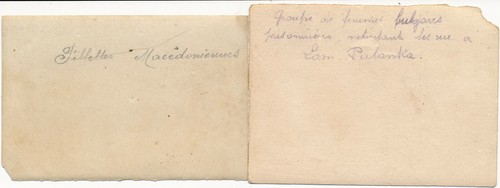 Fillettes Macédoniennes
Groupe de femmes bulgares
prisonnières nettoyant les rues à
Lom Palanka.